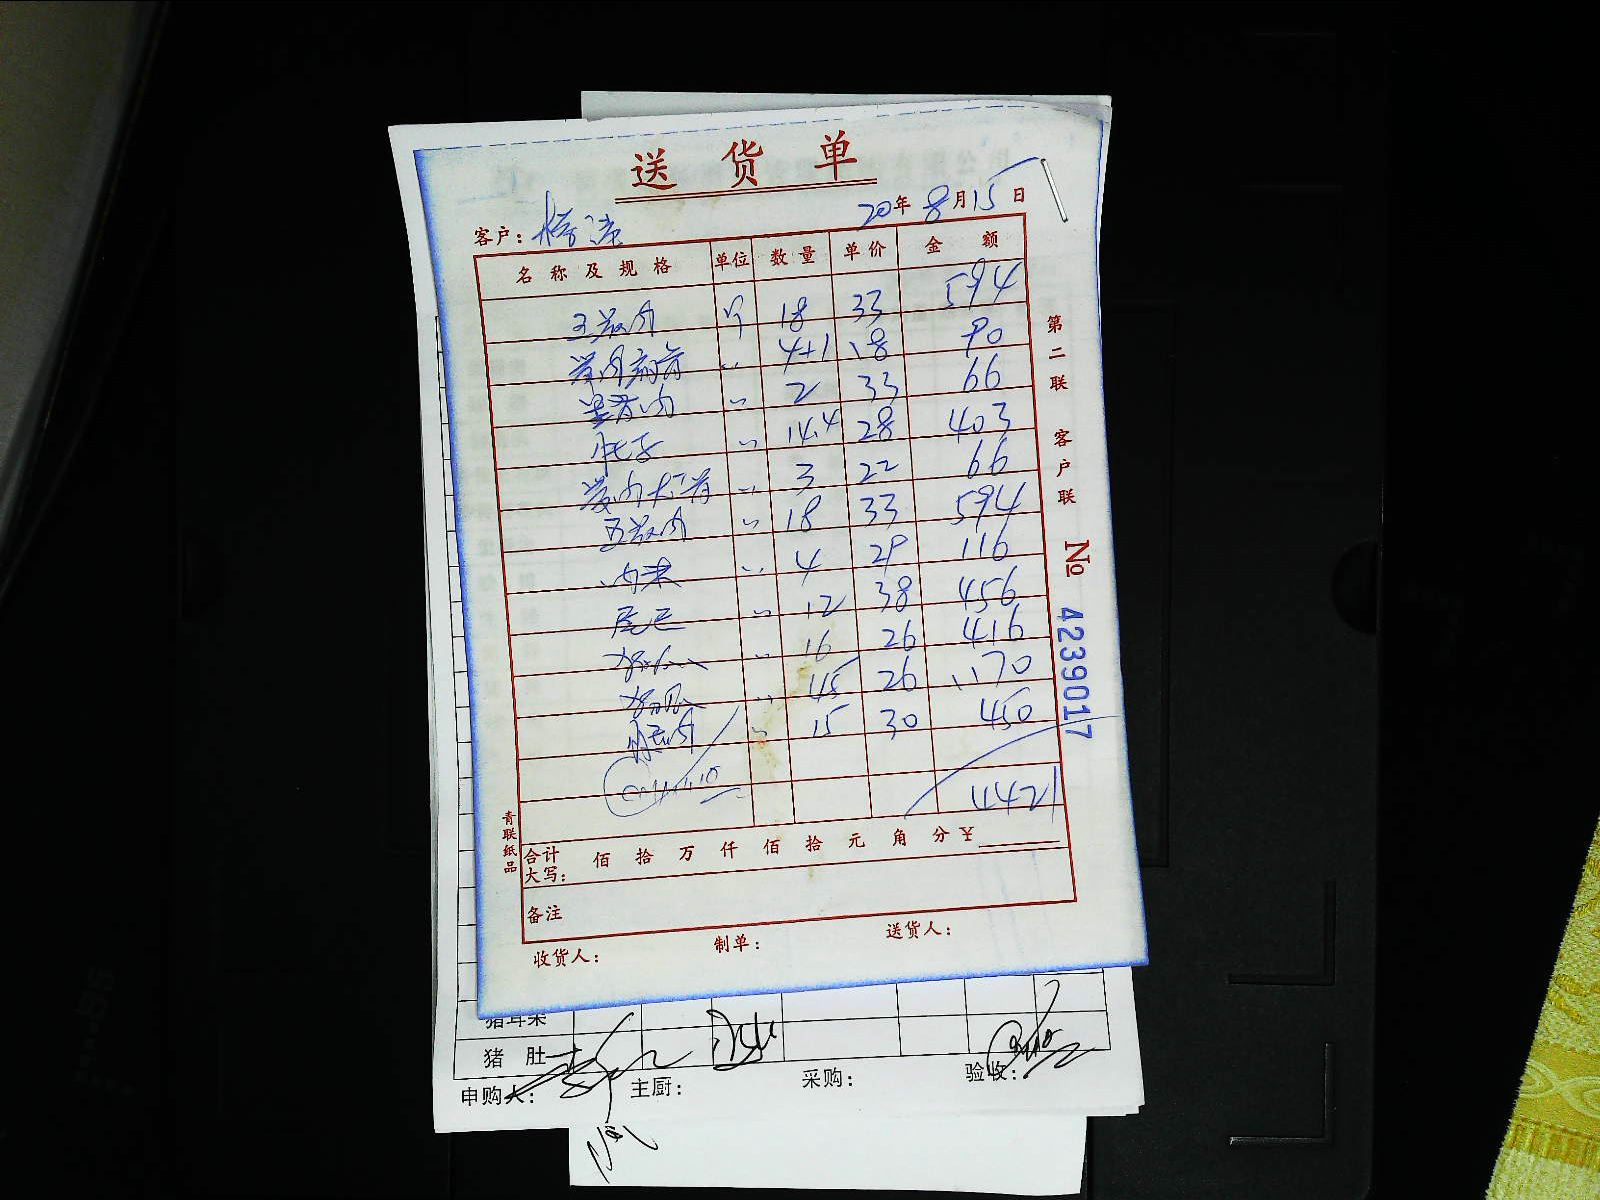 送货单
20年8月15日
客户:
名称及规格 单位 数量 单价 金额
五花肉 斤 18 33 594
4+1 18 90
2 33 66
肚子 14.4 28 403
3 22 66
五花肉 18 33 594
肉末 4 29 116
尾巴 12 38 456
16 26 416
45 26 1170
腿肉 15 30 450
4421
合计
大写: 佰 拾 万 仟 佰 拾 元 角 分 ¥
备注
收货人: 制单: 送货人:
第二联 客户联
No 4239017
青联纸品
猪耳朵
猪肚
申购人: 主厨: 采购: 验收: